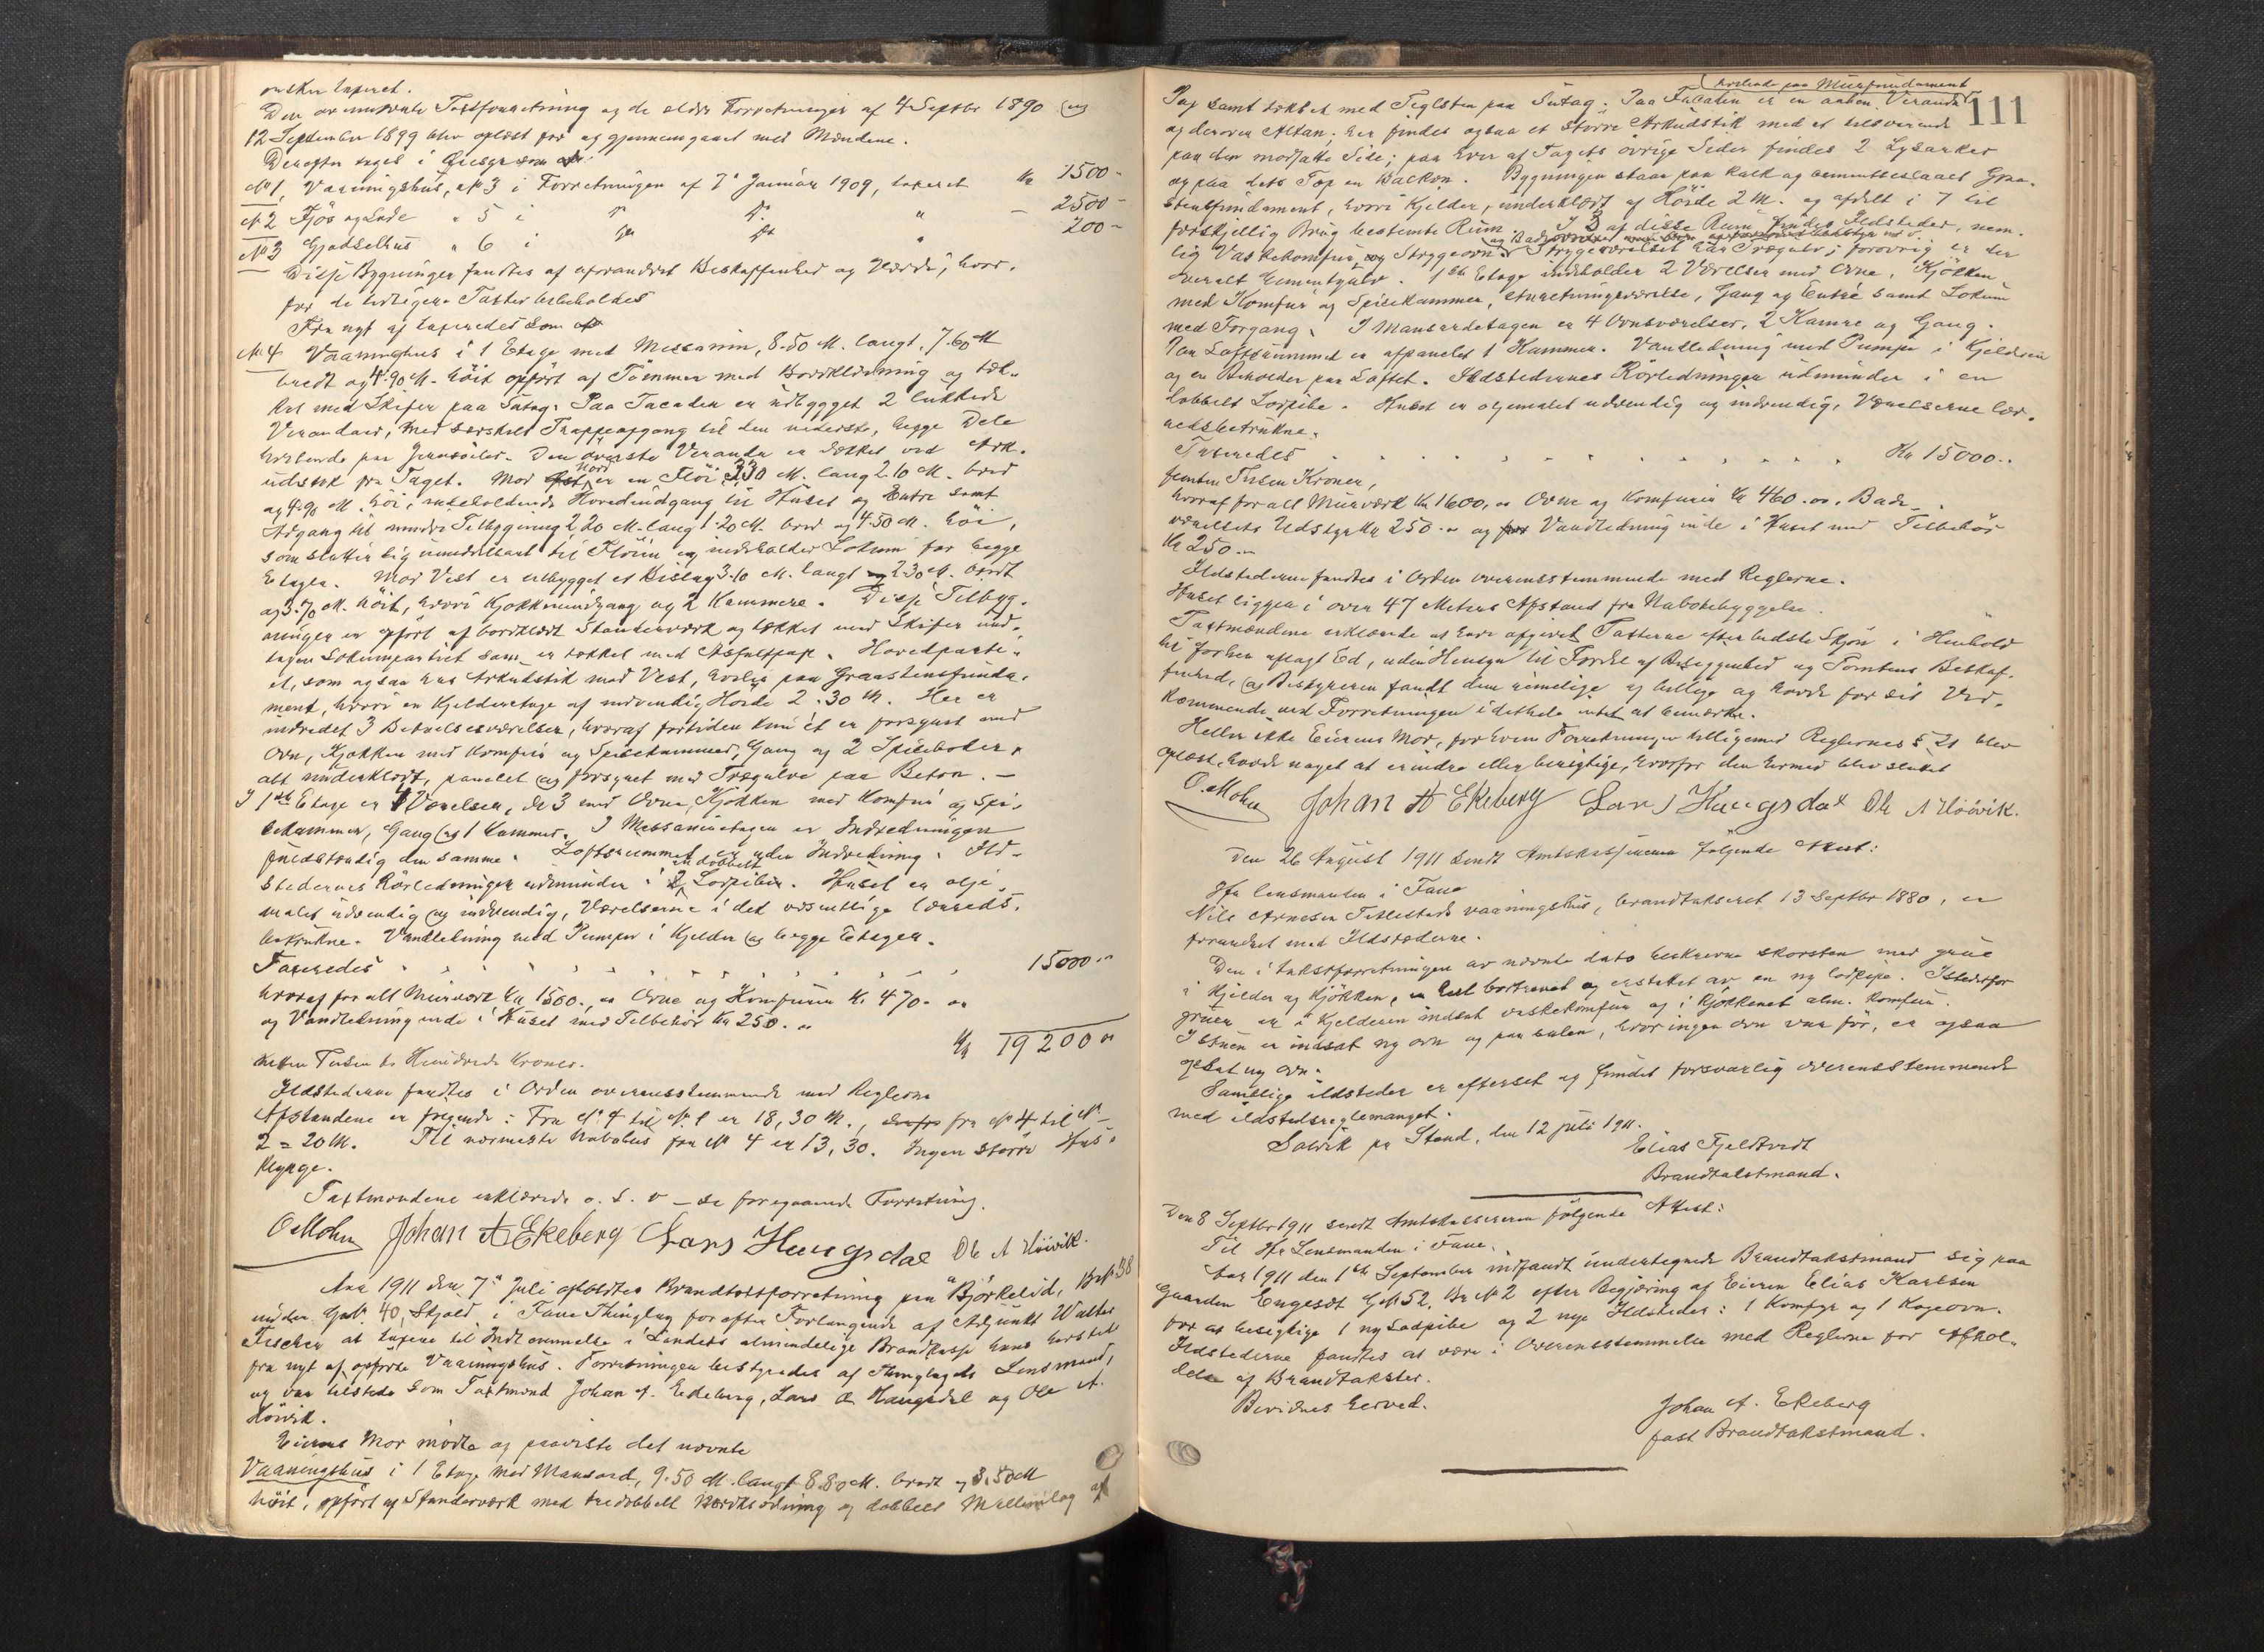 ønsker taxeret.
Den ovennævnte Taxtforretning og de ældre Forretninger af 4 Septbr 1890 og
12 September 1899 blev oplæst for og gjennemgaaet med Mændene.
Derefter toges i Øiesyn som
No 1, Vaaningshus, No 3 i Forretningen af 7de Januar 1909, taxeret Kr 1500 -
No 2 Fjøs og Lade " 5 i do do " — 2500 -
No 3 Gjødselhus " 6 i do do " 200 -
Disse Bygninger fandtes af uforandret Beskaffenhed og Værdi, hvor-
for de tidligere Taxter beholdes
Fra nyt af taxeredes som
No 4 Vaaningshus i 1 Etage med Messanin, 8.50 M. langt, 7.60 M
bredt og 4.90 M. høit opført af Tømmer med Bordklædning og tæk-
ket med Skifer paa Sutag. Paa Facaden er udbygget 2 lukkede
Verandaer, med særskilt Trappeopgang til den nederste, begge Dele
hvilende paa Jernsøiler. Den øverste Veranda er dækket ved Ark-
udstik fra Taget. Mod Nord er en Fløi 3.30 M. lang 2.10 M. bred
og 4.90 M. høi, indeholdende Hovedindgang til Huset og Entre samt
Adgang til mindre Tilbygning 2.20 M. lang 1.20 M. bred og 4.50 M. høi,
som slutter sig umiddelbart til Fløien og indeholder Lokum for begge
Etager. Mod Vest er tilbygget et Bislag 3.10 M. langt 2.30 M. bredt
og 3.70 M. høit, hvori Kjøkkenindgang og 2 Kammere. Disse Tilbyg-
ninger er opført af bordklædt Standerværk og tækket med Skifer und-
tagen Lokumpartiet som er tækket med Asfaltpap. Hovedparti-
et, som ogsaa har Arkudstik mod Vest, hviler paa Graastensfunda-
ment, hvori en Kjelderetage af indvendig Høide 2.30 M. Her er
indredet 3 Beboelsesværelser, hvoraf fortiden kun ét er forsynt med
Ovn, Kjøkken med Komfur og Spisekammer, Gang og 2 Spiseboder,
alt underklædt, panelet og forsynet med Trægulve paa Beton. —
I 1ste Etage er Værelser, de 3 med Ovne, Kjøkken med Komfur og Spi-
sekammer, Gang og 1 Kammer. I Messaninetagen er Indredningen
fuldstændig den samme. Loftsrummet er uden Indredning. Ild-
stedernes Rørledninger udmunder i en dobbelt Lodpibe. Huset er olje-
malet udvendig og indvendig, Værelserne i det væsentlige lærreds-
betrukne. Vandledning med Pumper i Kjelder og begge Etager.
Taxeredes . . . . . . . . . . . . . 15000 "
hvoraf for alt Murværk Kr 1500.,  Ovne og Komfurer Kr 470.
og Vandledning inde i Huset med Tilbehør Kr 250.
Kr 19200 "
nitten Tusen to Hundrede Kroner.
Ildstederne fandtes i Orden overensstemmende med Reglerne
Afstandene er følgende: Fra No 4 til No 1 er 18,30 M., fra No 4 til No
2 = 20 M. Til nærmeste Nabohus fra No 4 er 13,30. Ingen større Hus-
klynge.
Taxtmændene erklærede o. s. v — se foregaaende Forretning.
O Mohn Johan A Ekeberg Lars Haugsdal Ole A Höivik.
Aar 1911 den 7de Juli afholdtes Brandtaxtforretning paa "Bjørkelid, Br No 38
under G No 40, Skjold, i Fane Thinglag for efter Forlangende af Adjunkt Walter
Fischer at taxere til Indlemmelse i Landets almindelige Brandkasse hans
fra nyt af opførte Vaaningshus. Forretningen bestyredes af Thinglagets Lensmand,
og var tilstede som Taxtmænd Johan A. Ekeberg, Lars Haugsdal og Ole A.
Høivik.
Eierens Mor mødte og paaviste det nævnte
Vaaningshus i 1 Etage med Mansard, 9.50 M. langt 8.80 M. bredt og 3.50 M
høit, opført af Standerværk med tredobbelt Bordklædning og dobbelt Mellemlag af
111
hvilende paa Murfundament
Pap samt tækket med Teglsten paa Sutag. Paa Facaden er en aaben Veranda
og derover Altan; her findes ogsaa et større Arkudstik med et tilsvarende
paa den modsatte Side; paa hver af Tagets øvrige Sider findes 2 Lysarker
og paa dets Top en Balkon. Bygningen staar paa kalk og cementslaaet Graa-
stensfundament, hvori Kjelder, underklædt af Høide 2 M. og afdelt i 7 til
forskjellig Brug bestemte Rum. I 3 af disse Rum findes Ildsteder, nem-
lig Vaskekomfur, og Strygeovn. Strygeværelset har Trægulv; forøvrig er der
overalt Cementgulv. 1ste Etage indeholder 2 Værelser med Ovne, Kjøkken
med Komfur og Spisekammer, Anretningsværelse, Gang og Entré samt Lokum
med Forgang. I Mansardetagen er 4 Ovnsværelser, 2 Kamre og Gang.
Paa Loftsrummet er afpanelet 1 Kammer. Vandledning med Pumpe i Kjelderen
og en Beholder paa Loftet. Ildstedernes Rørledninger udmunder i en
dobbelt Lodpibe. Huset er oljemalet udvendig og indvendig, Værelserne lær-
redsbetrukne.
Taxeredes . . . . . . . . . . . . . Kr 15000..
femten Tusen Kroner,
hvoraf for alt Murværk Kr 1600, Ovne og Komfurer Kr 460.oo, Bade-
værelsets Udstyr Kr 250. og Vandledning inde i Huset med Tilbehør
Kr 250.
Ildstederne fandtes i Orden overensstemmende med Reglerne.
Huset ligger i over 47 Meters Afstand fra Nabobebyggelse.
Taxtmændene erklærede at have afgivet Taxterne efter bedste Skjøn i Henhold
til forhen aflagt Ed, uden Hensyn til Fordel af Beliggenhed og Tomtens Beskaf-
fenhed, og Bestyreren fandt dem rimelige og billige og havde for sit Ved-
kommende ved Forretningen i dethele intet at bemærke.
Heller ikke Eierens Mor, for hvem Forretningen tilligemed Reglernes § 21 blev
oplæst, havde noget at erindre eller berigtige, hvorfor den hermed blev sluttet
O. Mohn Johan A Ekeberg Lars Haugsdal Ole A Höivik.
Den 26 August 1911 sendt Amtskassereren følgende Attest:
Hr lensmanden i Fane
Nils Arnesen Titlestads vaaningshus, brandtakseret 13 Septbr 1880, er
forandret med Ildstederne.
Den i takstforretningen av nævnte dato beskrevne skorsten med grue
i Kjelder og Kjøkken, er helt bortrevet og erstattet av en ny lodpipe. Istedetfor
gruer er i Kjelderen indsat vaskekomfur og i Kjøkkenet alm. komfur.
I stuen er indsat ny ovn og paa salen, hvor ingen ovn var før, er ogsaa
opsat ny ovn.
Samtlige ildsteder er efterset og fundet forsvarlig overensstemmende
med ildstedsreglemanget.
Salvik pr Stend, den 12 juli 1911.
Elias Fjeldtvedt
Brandtakstmand.
Den 8 Septbr 1911 sendt Amtskassereren følgende Attest:
Til Hr Lensmanden i Fane.
Aar 1911 den 1ste September indfandt undertegnede Brandtakstmand sig paa
Gaarden Engesæt G No 52, Br No 2 efter Begjæring af Eieren Elias Karlsen
for at besigtige 1 ny Lodpibe og 2 nye Ildsteder: 1 Komfyr og 1 Kogeovn.
Ildstederne fandtes at være i Overensstemmelse med Reglerne for Afhol-
delse af Brandtakster.
Bevidnes herved.
Johan A. Ekeberg
fast Brandtakstmand.